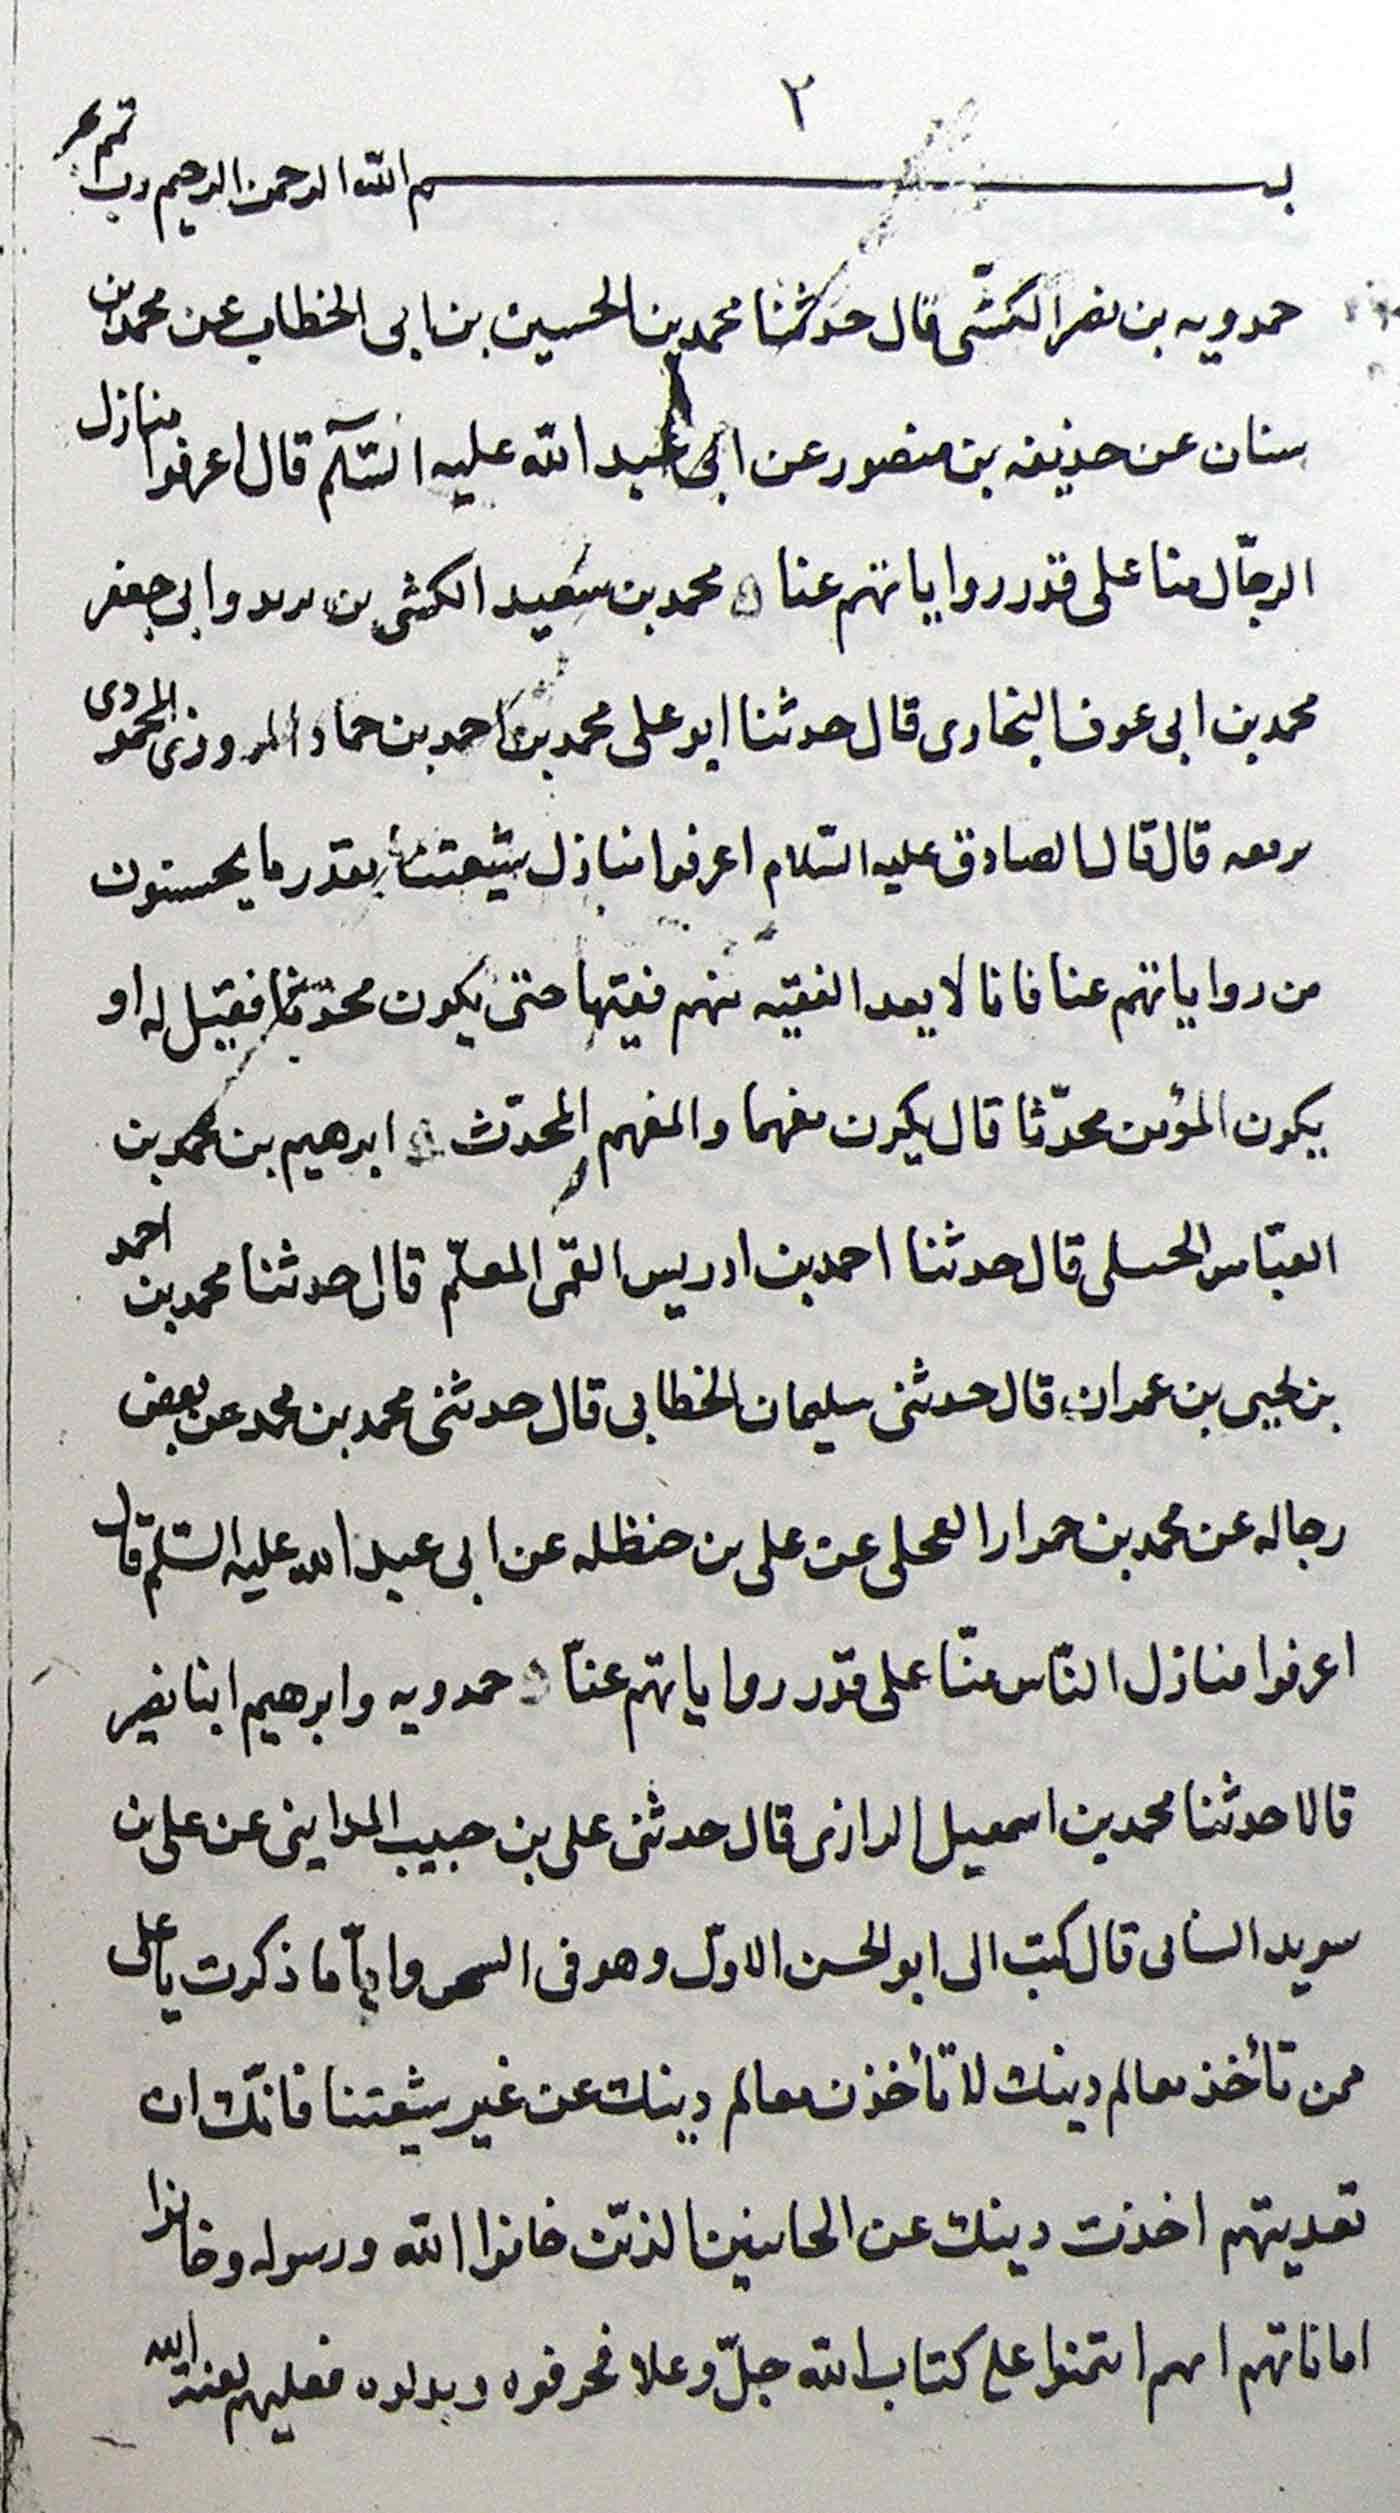 ٢
بسم الله الرحمن الرحيم رب تمم
حمدويه بن نصر الكشّى قال حدثنا محمد بن الحسين بن ابى الخطاب عن محمد بن
سنان عن حذيفه بن منصور عن ابى عبد الله عليه السّلم قال اعرفوا منازل
الرجّال منا على قدر رواياتهم عنا محمد بن سعيد الكشى بن يريد وابى جعفر
محمد بن ابى عوف البخارى قال حدثنا ابو على محمد بن احمد بن حماد المروزى المحمودى
يرفعه قال قال الصادق عليه السّلام اعرفوا منازل شيعتنا بقدر ما يحسنون
من رواياتهم عنا فانا لا يعد الفقيه منهم فقيها حتى يكون محدّثا فقيل له او
يكون المؤمن محدّثا قال يكون مفهما والمفهم المحدّث ابرهيم بن محمد بن
العبّاس الحسلى قال حدثنا احمد بن ادريس القمّى المعلّم قال حدثنا محمد بن احمد
بن يحيى بن عمران قال حدثنى سليمان الخطابى قال حدثنى محمد بن محمد عن بعض
رجاله عن محمد بن حمران العجلى عن على بن حنظله عن ابى عبد الله عليه السّلم قال
اعرفوا منازل النّاس منّا على قدر رواياتهم عنّا حمدويه وابرهيم ابنا نصير
قالا حدثنا محمد بن اسمعيل الرازى قال حدثنى على بن حبيب المداينى عن على بن
سويد السائى قال كتب الى ابو الحسن الاوّل وهو فى السجن وامّا ما ذكرت يا على
ممن تأخذ معالم دينك لا تأخذن معالم دينك عن غير شيعتنا فانّك ان
تعديتهم اخذت دينك عن الخاينين الذين خانوا الله ورسوله وخانوا
اماناتهم انهم ائتمنوا على كتاب الله جلّ وعلا فحرفوه وبدلوه فعليهم لعنة الله